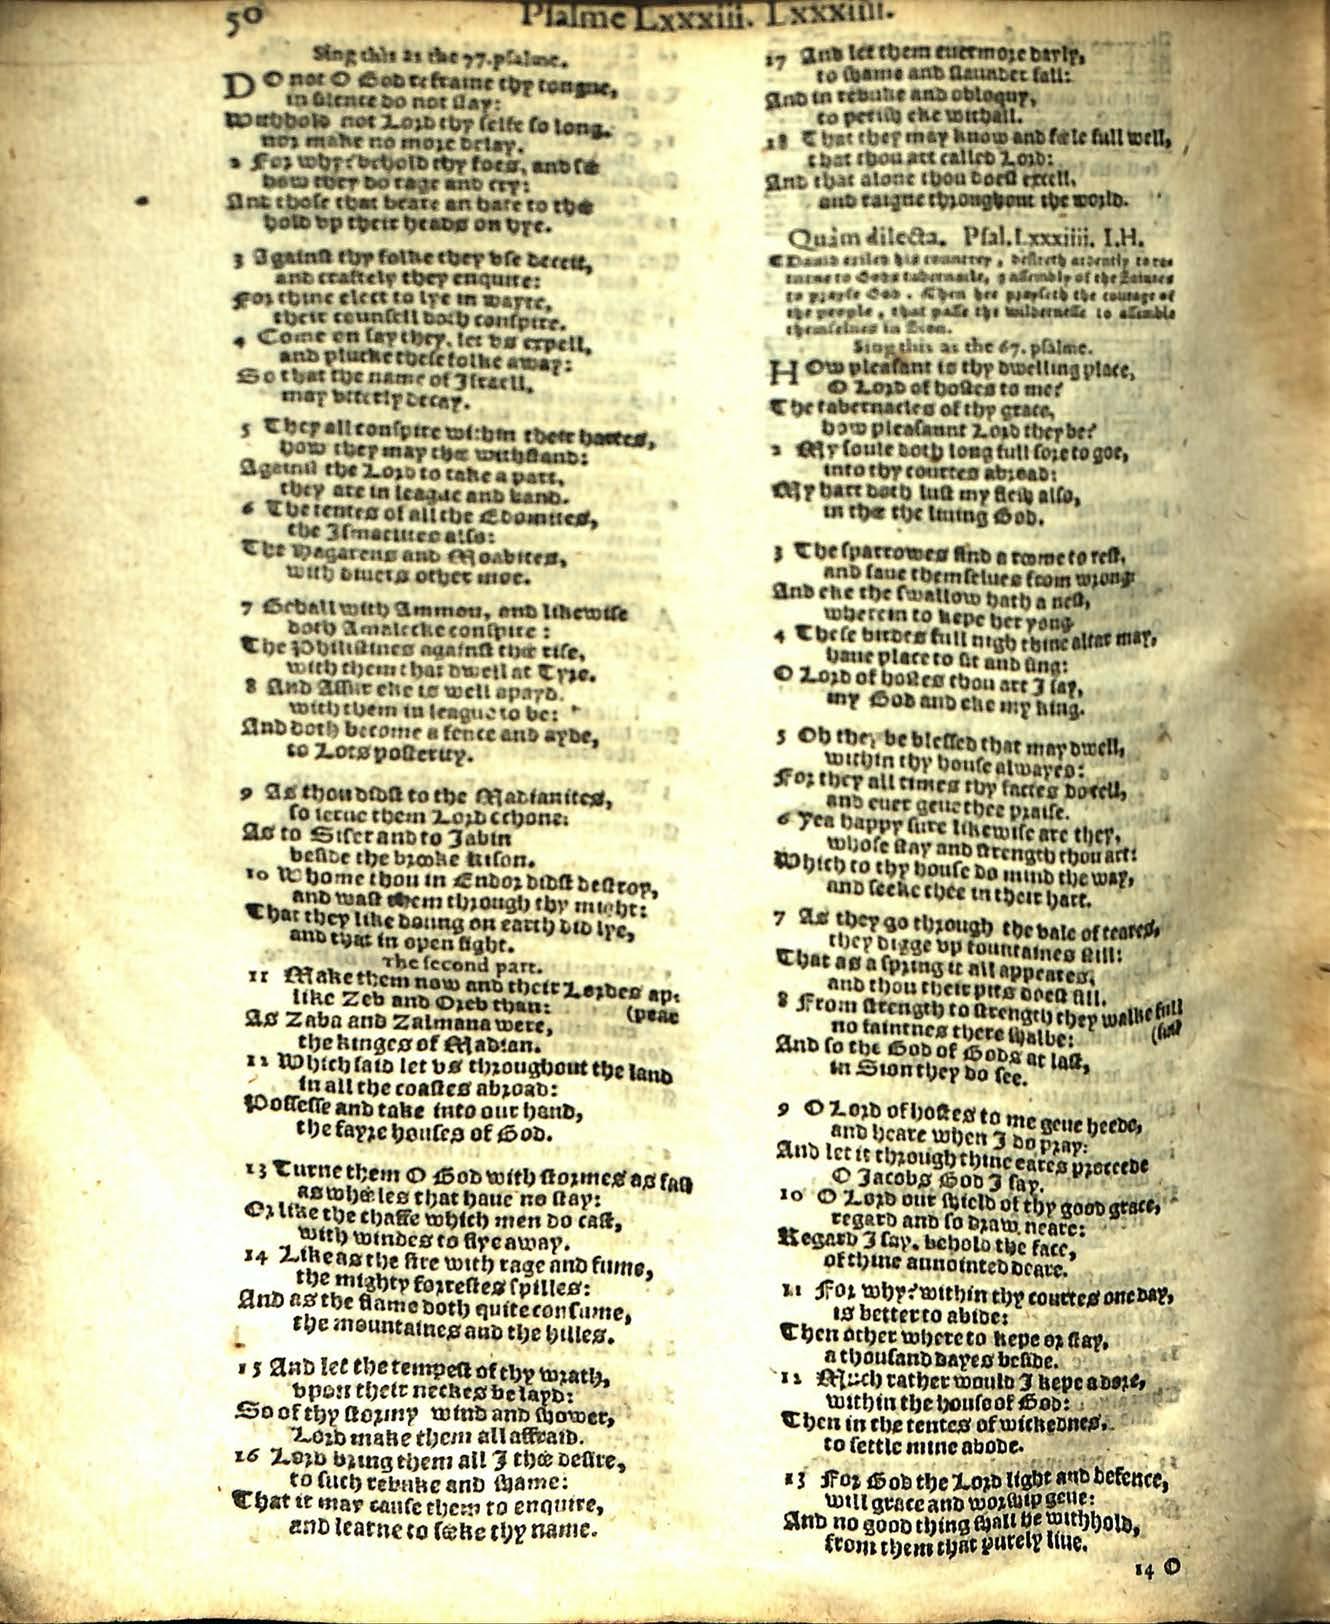 50
Psalme Lxxxiii. Lxxxiiii.
Sing this as the 77. psalme.
DO not O God refraine thy tongue,
in silence do not stay:
Withhold not Lord thy selfe so long.
nor make no more delay.
2 For why? behold thy foes, and sée
how they do rage and cry:
And those that beare an hate to thée
hold vp their heads on hye.
3 Against thy folke they vse deceit,
and craftely they enquire:
For thine elect to lye in wayte,
their counsell doth conspire.
4 Come on say they, let vs expell,
and plucke these folke away:
So that the name of Israell,
may vtterly decay.
5 They all conspire within their hartes,
how they may thée withstand:
Against the Lord to take a part,
they are in league and band.
6 The tentes of all the Edomites,
the Ismaelites also:
The Hagarens and Moabites,
with diuers other moe.
7 Geball with Ammon, and likewise
doth Amalecke conspire:
The Philistines against thée rise,
with them that dwell at Tyre.
8 And Assur eke is well apayd.
with them in league to be:
And doth become a fence and ayde,
to Lots posterity.
9 As thou didst to the Madianites,
so serue them Lord echone:
As to Siser and to Jabin
beside the brooke kison.
10 Whome thou in Endor didst destroy,
and wast them through thy might:
That they like doung on earth did lye,
and that in open sight.
The second part.
11 Make them now and their Lordes ap-
like Zeb and Oreb than: (peare
As Zaba and Zalmana were,
the kinges of Madian.
12 Which said let vs throughout the land
in all the coastes abroad:
Possesse and take into our hand,
the fayre houses of God.
13 Turne them O God with stormes as fast
as whéeles that haue no stay:
Or like the chaffe which men do cast,
with windes to flye away.
14 Like as the fire with rage and fume,
the mighty forrestes spilles:
And as the flame doth quite consume,
the mountaines and the hilles.
15 And let the tempest of thy wrath,
vpon their neckes be layd:
So of thy stormy wind and shower,
Lord make them all affraid.
16 Lord bring them all I thée desire,
to such rebuke and shame:
That it may cause them to enquire,
and learne to séeke thy name.
17 And let them euermore dayly,
to shame and slaunder fall:
And in rebuke and obloquy,
to perish eke withall.
18 That they may know and féele full well,
that thou art called Lord:
And that alone thou doest excell,
and raigne throughout the world.
Quàm dilecta. Psal. Lxxxiiii. I.H.
¶ Dauid exiled his countrey, desireth ardently to re-
turne to Gods tabernacle, & assembly of the Saintes
to prayse God. Then hee prayseth the courage of
the people, that passe the wildernesse to assemble
themselues in Sion.
Sing this as the 67. psalme.
HOw pleasant is thy dwelling place,
O Lord of hostes to me?
The tabernacles of thy grace,
how pleasaunt Lord they be?
2 My soule doth long full sore to goe,
into thy courtes abroad:
My hart doth lust my flesh also,
in thée the liuing God.
3 The sparrowes find a roome to rest,
and saue themselues from wrong:
And eke the swallow hath a nest,
wherein to kepe her yong
4 These birdes full nigh thine altar may,
haue place to sit and sing:
O Lord of hostes thou art I say,
my God and eke my king.
5 Oh they be blessed that may dwell,
within thy house alwayes:
For they all times thy factes do tell,
and euer geue thee praise.
6 Yea happy sure likewise are they,
whose stay and strength thou art:
Which to thy house do mind the way,
and seeke thee in their hart.
7 As they go through the vale of teares,
they digge vp fountaines still:
That as a spring it all appeares,
and thou their pits doest fill.
8 From strength to strength they walke full
no faintnes there shalbe: (fast
And so the God of Gods at last,
in Sion they do see.
9 O Lord of hostes to me geue heede,
and heare when I do pray:
And let it through thine eares proceede
O Jacobs God I say.
10 O Lord our shield of thy good grace,
regard and so draw neare:
Regard I say, behold the face,
of thine annointed deare.
11 For why? within thy courtes one day,
is better to abide:
Then other where to kepe or stay,
a thousand dayes beside.
12 Much rather would I kepe a dore,
within the house of God:
Then in the tentes of wickednes,
to settle mine abode.
13 For God the Lord light and defence,
will grace and worship geue:
And no good thing shall he withhold,
from them that purely liue.
14 O